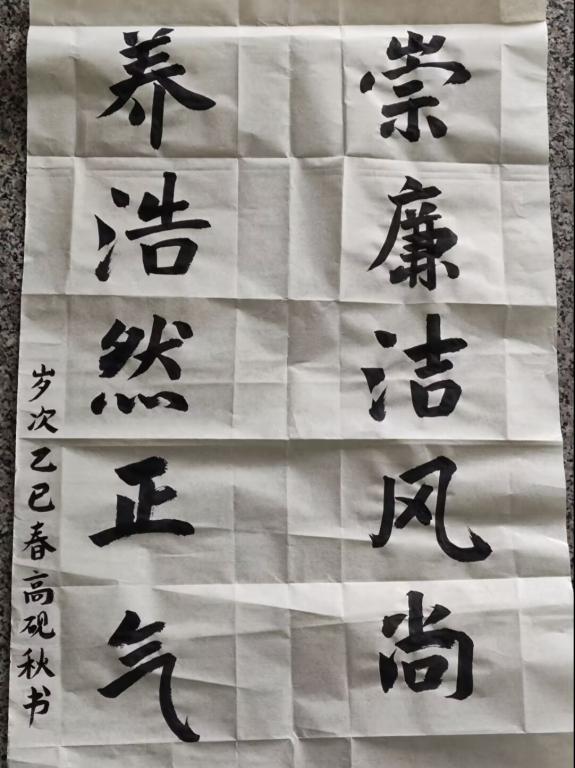 崇廉洁风尚
养浩然正气
岁次乙巳春高砚秋书